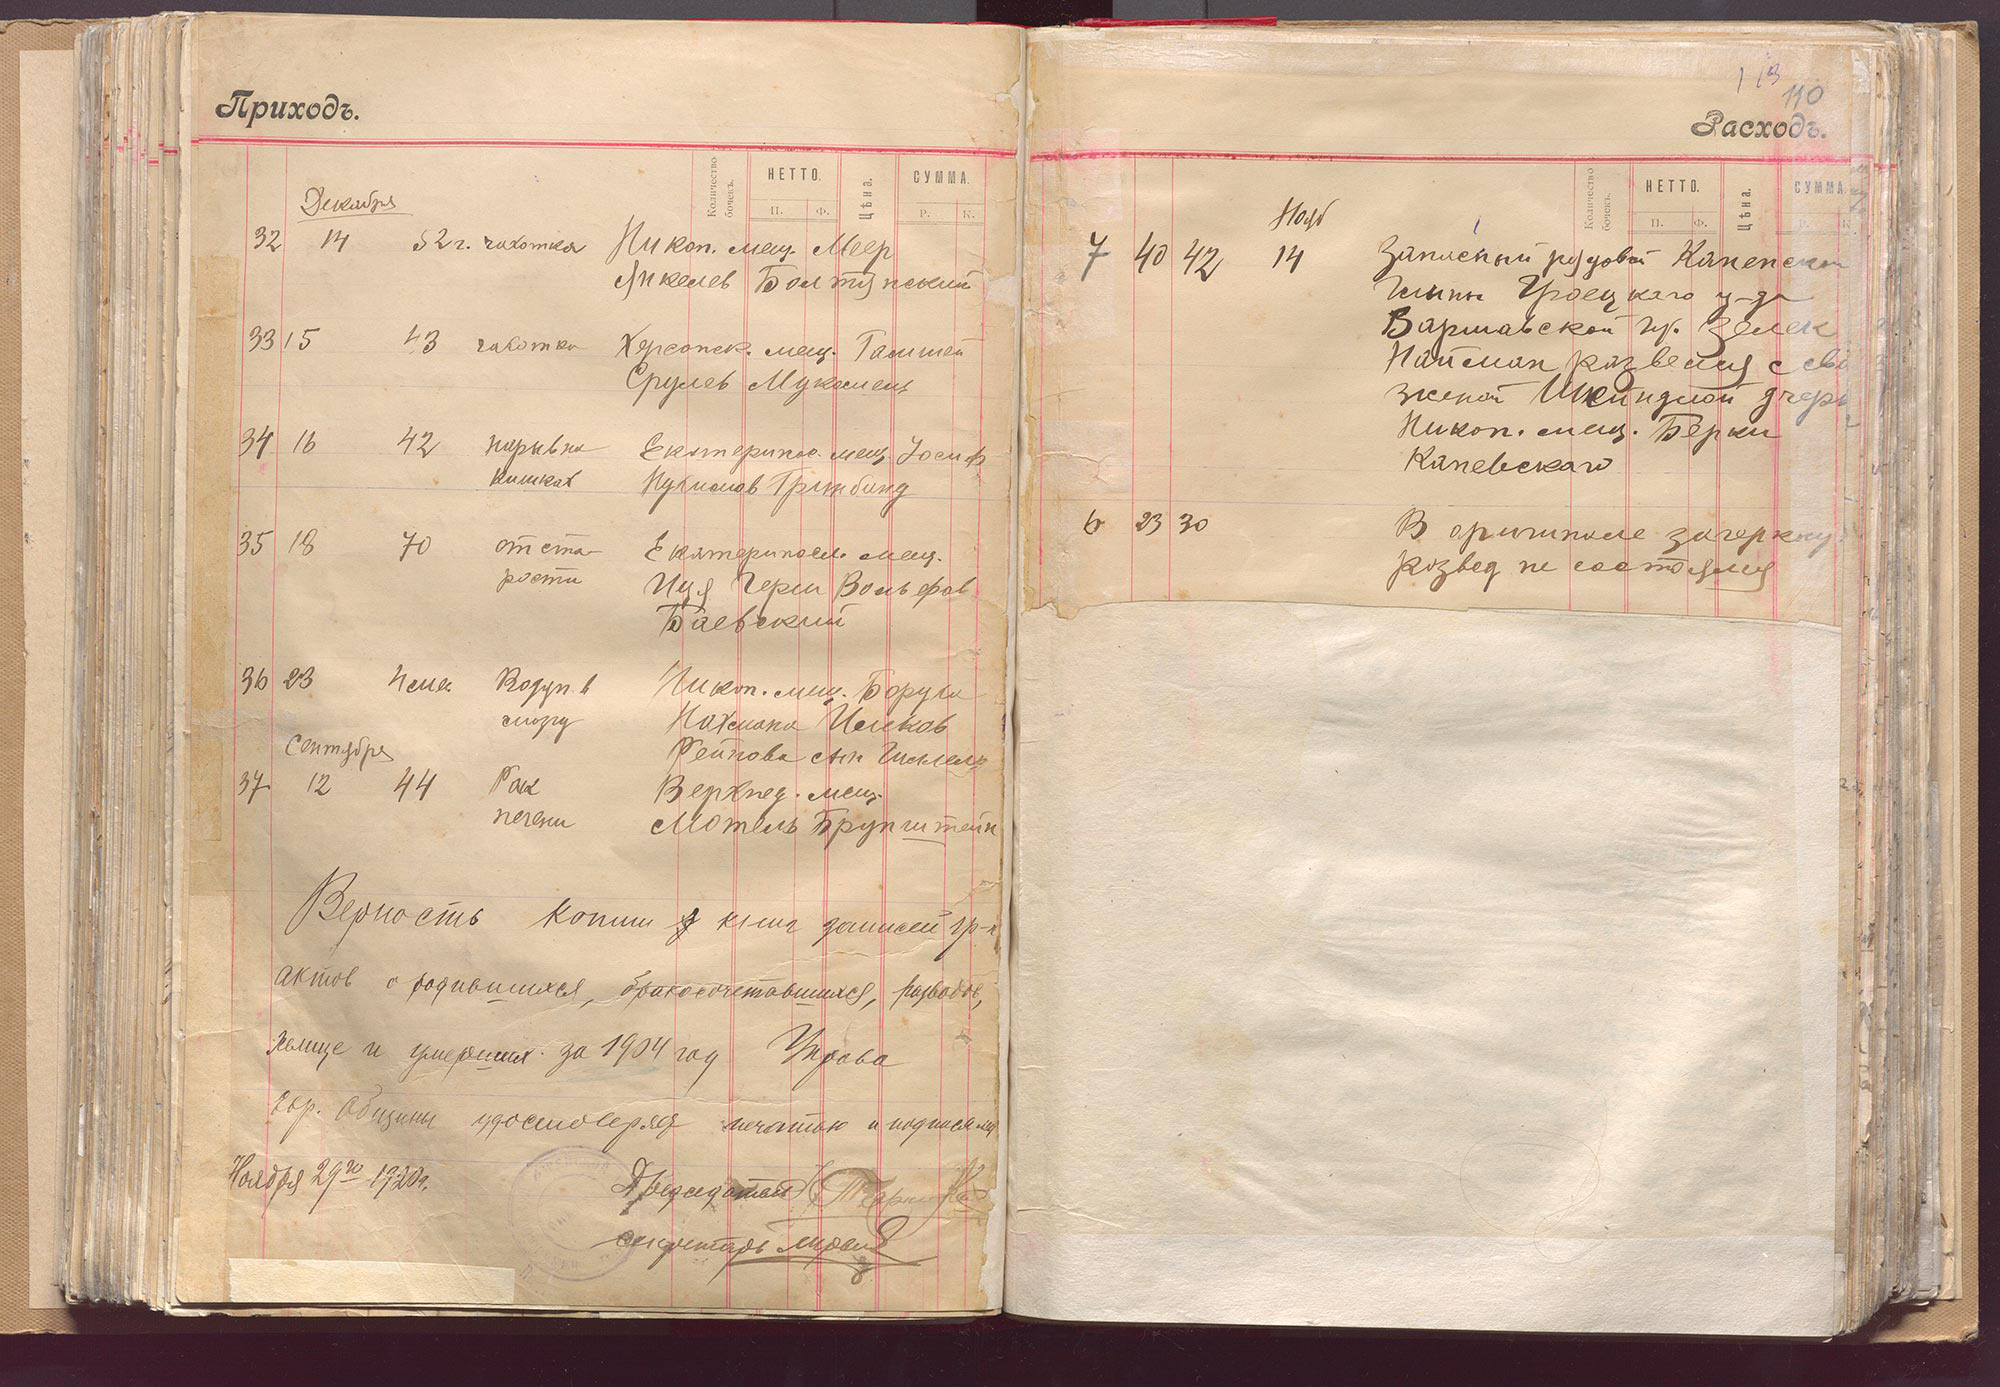 Приходъ.
Количество бочекъ.
НЕТТО.
П. Ф.
Цѣна.
СУММА.
Р. К.
Декабря
32 14 52 г. чахотка Никоп. мещ. Меер
Янкелев Болтянский
33 15 43 чахотка Херсонск. мещ.
Срулев
34 16 42 нарыв на Екатеринос. мещ. Иосиф
кишках
35 18 70 от ста- Екатериносл. мещ.
рости Иця Герш Вольфов
Баевский
36 23 4 мес. Никоп. мещ. Боруха
мозгу Нахмана
Сентября
37 12 44 Рак Верхнед. мещ.
печени Мотель Брунштейн
Верность копии книг записей гр-х
актов о родившихся, бракосочетавшихся, разводов,
халице и умерших за 1904 год Управа
Евр. Общины удостоверяет печатью и подписями
Ноября 29го 1920 г. Председатель
Секретарь
113
110
Расходъ.
Количество бочекъ.
НЕТТО.
П. Ф.
Цѣна.
СУММА
Р. К.
Нояб
7 40 42 14 Запасный рядовой
Гмины Гроецкаго у-да
Варшавской гу. Зелек
Найман развелся с сво
женой Шейндлой дчерь
Никоп. мещ. Берки
Каневскаго
6 23 30 В оригинале зачеркну
развод не состоялся